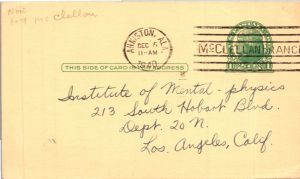 Fort McClellan
ANNISTON, ALA.
DEC
11-AM
1940
McCLELLAN BRANCH
THIS SIDE OF CARD IS FOR ADDRESS
Institute of Mental-physics
213 South Hobart Blvd.
Dept. 20 N.
Los Angeles, Calif.